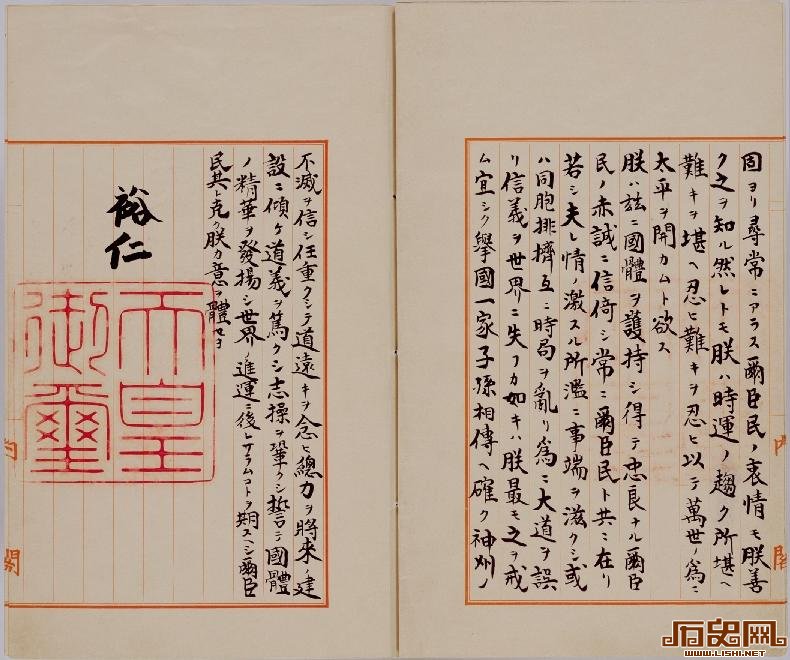 固ヨリ尋常ニアラス爾臣民ノ衷情モ朕善
ク之ヲ知ル然レトモ朕ハ時運ノ趨ク所堪ヘ
難キヲ堪ヘ忍ヒ難キヲ忍ヒ以テ萬世ノ爲ニ
太平ヲ開カムト欲ス
朕ハ玆ニ國體ヲ護持シ得テ忠良ナル爾臣
民ノ赤誠ニ信倚シ常ニ爾臣民ト共ニ在リ
若シ夫レ情ノ激スル所濫ニ事端ヲ滋クシ或
ハ同胞排擠互ニ時局ヲ亂リ爲ニ大道ヲ誤
リ信義ヲ世界ニ失フカ如キハ朕最モ之ヲ戒
ム宜シク擧國一家子孫相傳ヘ確ク神州ノ
内閣
不滅ヲ信シ任重クシテ道遠キヲ念ヒ總力ヲ將來ノ建
設ニ傾ケ道義ヲ篤クシ志操ヲ鞏クシ誓テ國體
ノ精華ヲ發揚シ世界ノ進運ニ後レサラムコトヲ期スヘシ爾臣
民其レ克ク朕カ意ヲ體セヨ
裕仁
天皇
御璽
内閣
历史网
WWW.LISHI.NET